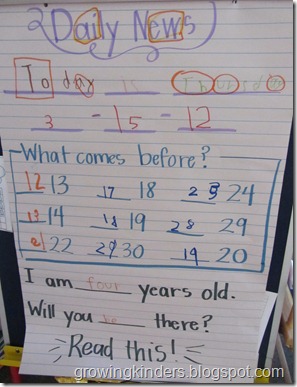 Daily News
Today is Thursday
3 - 15 - 12
What comes before?
12 13 17 18 23 24
13 14 18 19 28 29
21 22 29 30 19 20
I am four years old.
Will you be there?
Read this!
growingkinders.blogspot.com